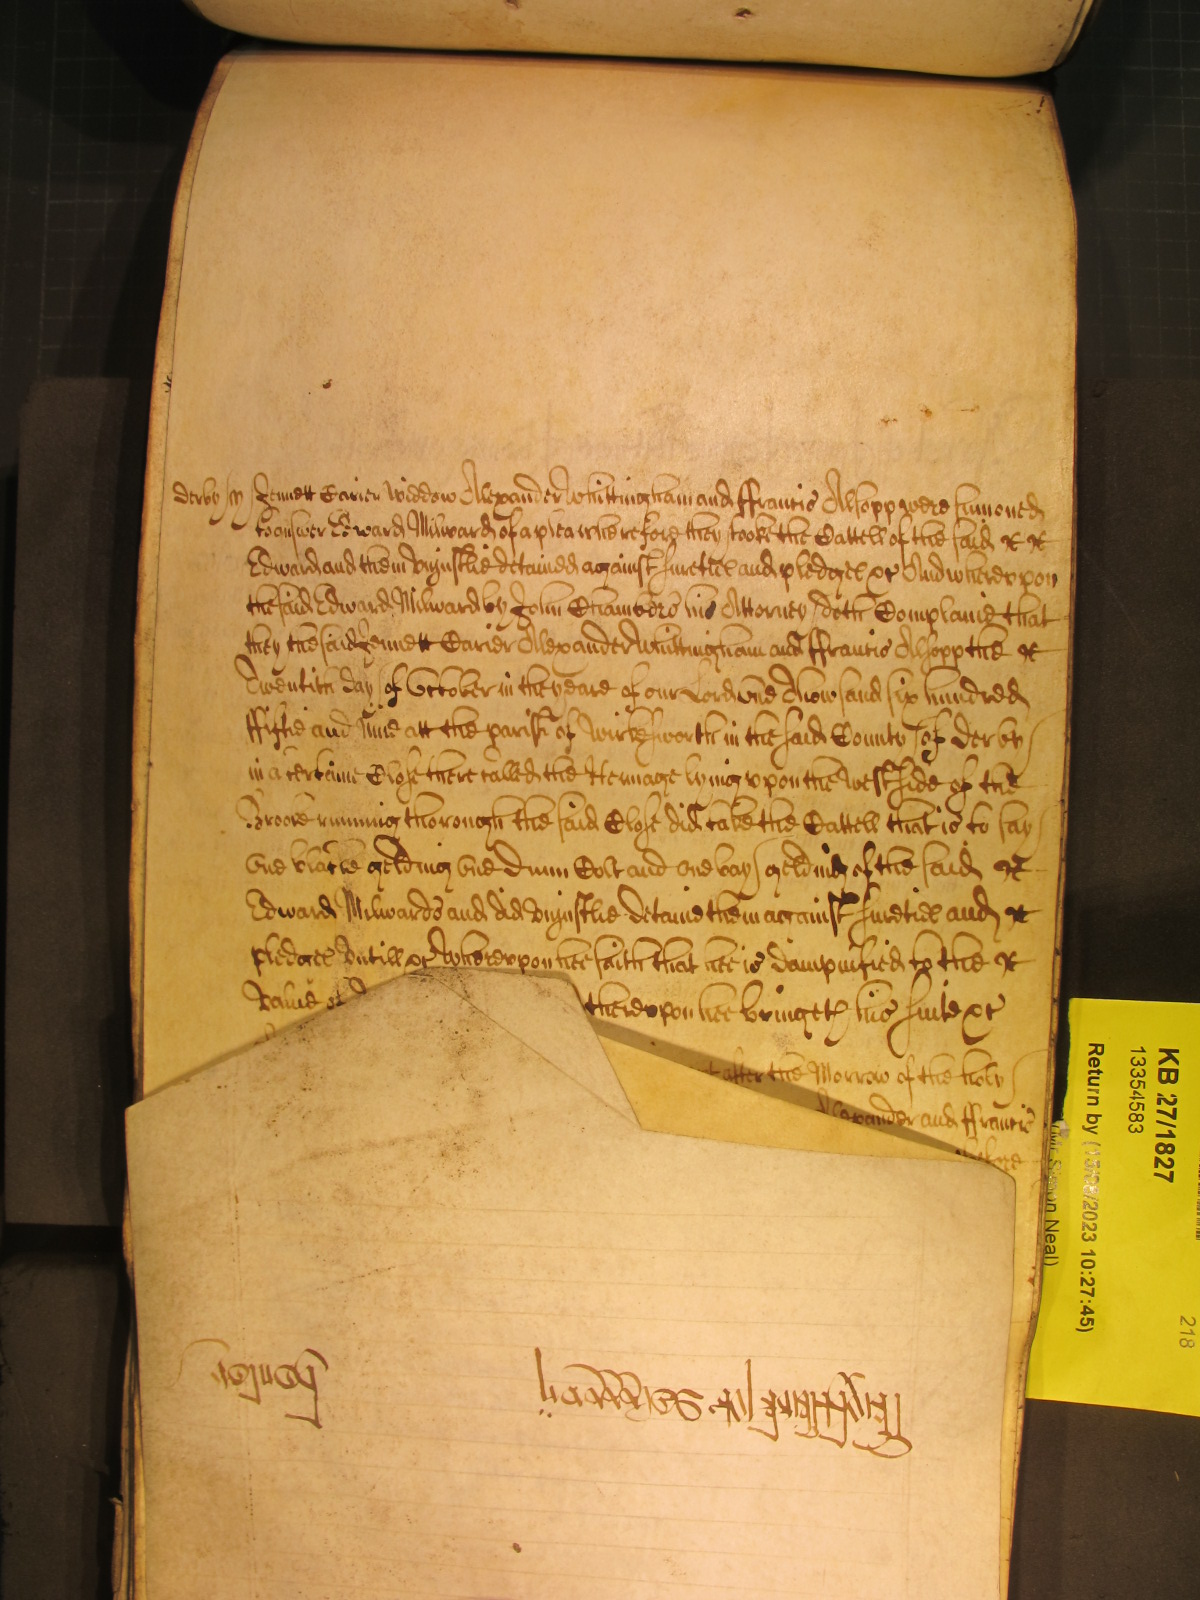 derby ss Jennett Carier Widdow Alexander Whittingham and ffrancis Alsopp were sumoned
to answer Edward Milward of a plea wherefore they tooke the Cattell of the said
Edward and them uniustlie detained against suretiel and pledgel &c And whereupon
the said Edward Milward by John Chambers his Attorney doth Complaine that
they the said Jennett Carier Alexander Whittingham and ffrancis Alsopp the
Twentith day of October in the yeare of our Lord One Thowsand six hundred
ffiftie and Nine att the parish of Wirkesworth in the said County of derby
in a certaine Close there called the Hermage lying upon the west side of the
Brooke running thorough the said Close did take the Cattell that is to say
One blacke gelding One Dunn Colt and one bay gelding of the said
Edward Milwards and did uniustlie detaine them against suretiel and
pledgel Untill &c Whereupon hee saith that hee is dampnified to the
Value of thereupon hee bringeth his suite &c
after the Morrow of the holy
Alexander and ffrancis
KB 27/1827
13354583
Return by (13/06/2023 10:27:45)
Simon Neal)
218